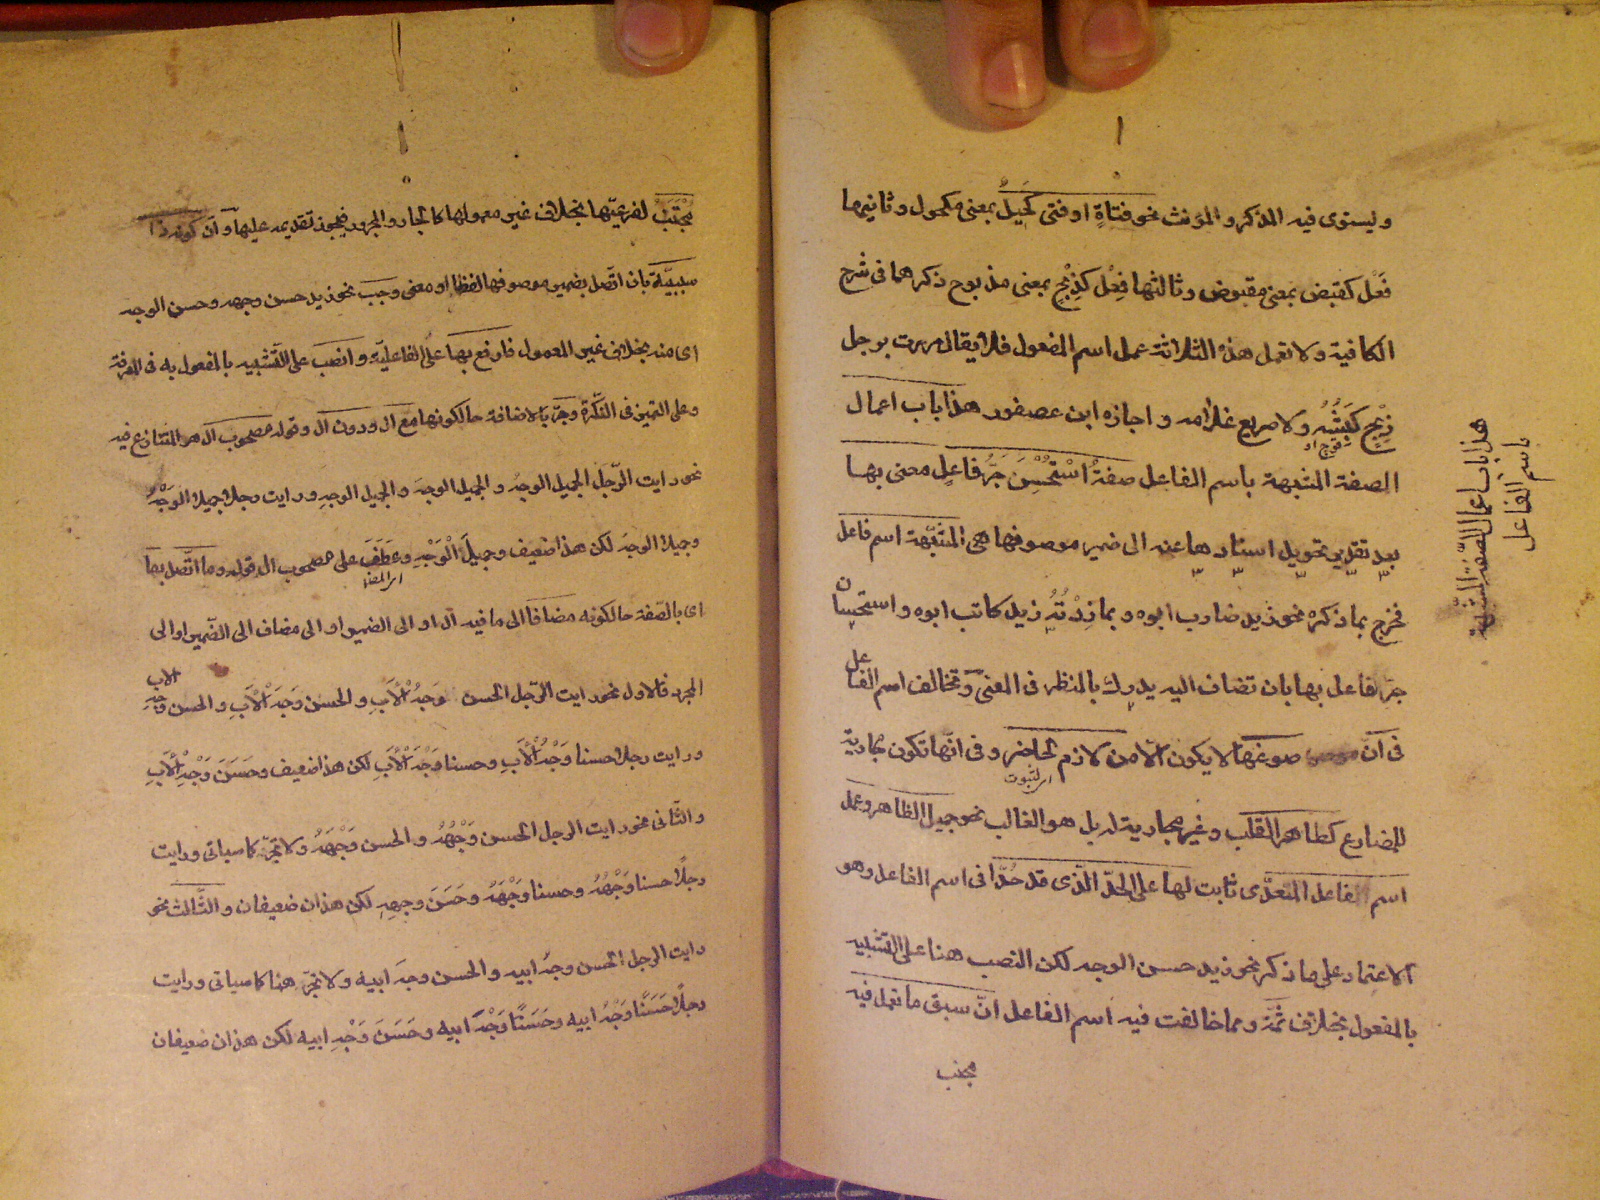 ويستوى فيه المذكر والمؤنث نحو فتاةٍ او فتى كَحِيلٌ بمعنى مكحول وثانيهما
فَعَل كقبض بمعنى مقبوض وثالثها فِعْل كَذِبْحٍ بمعنى مذبوح ذكرهما فى شرح
الكافية ولا تعمل هذه الثلاثة عمل اسم المفعول فلا يقال مررت برجل
ذِبْحٍ كَبْشُهُ ولا صريع غلامه واجازه ابن عصفور هذا باب اعمال
الصفة المشبهة باسم الفاعل صفةٌ اسْتُحْسِنَ جَرُّ فاعِلٍ معنى بها
بعد تقدير تحويل اسنادها عنه الى ضمير موصوفها هى المشبّهة اسم فاعل
فخرج بما ذكره نحو زيد ضارب ابوه وبما زِدْتُهُ زيد كاتب ابوه واستحسان
جرّ الفاعل بها بان تضاف اليه يدرك بالنظر فى المعنى وتخالف اسم الفاعل
فى انّ صوغها لا يكون الّا من لازم لحاضر وفى انّها تكون مجارية
للمضارع كطاهر القلب وغير مجارية له بل هو الغالب نحو جميل الظاهر وعمل
اسم الفاعل المتعدّى ثابت لها على الحدّ الّذى قد حُدّا فى اسم الفاعل وهو
الاعتماد على ما ذكر نحو زيد حسن الوجه لكن النصب هنا على التشبيه
بالمفعول بخلافه ثَمّةَ ومما خالفت فيه اسم الفاعل انّ سبق ما تعمل فيه
مجتنب
هذا باب اعمال الصّفة المشبّهة
باسم الفاعل
مُجْتَنَبٌ لفرعيّتها بخلاف غير معمولها كالجار والمجرور فيجوز تقديمه عليها وانّ كونه ذا
سببيّة بان اتّصل بضمير موصوفها لفظا او معنى وجب نحو زيد حسن وجهه وحسن الوجه
اى منه بخلاف غير المعمول فارفع بها على الفاعليّة وانصب على التّشبيه بالمفعول به فى المعرفة
وعلى التميز فى النّكرة وجرّ بالاضافة حالكونها مع ال ودون ال وقوله مصحوب ال هو المتنازع فيه
نحو رايت الرّجل الجميل الوجهُ والجميل الوجهَ والجميل الوجهِ ورايت رجلا جميلا الوَجْهُ
وجميلا الوجهَ لكن هذا ضعيف وجميلَ الْوَجْهِ وعَطَفَ على مصحوب ال قوله وما اتّصل بها
اى بالصّفة حالكونه مضافا الى ما فيه ال او الى الضمير او الى مضاف الى الضّمير او الى
المجرد فالاول نحو رايت الرّجل الحسن وَجْهُ الْأَبِ والحسن وَجْهَ الْأَبِ والحسن وَجْهِ الاب
ورايت رجلا حسنا وَجْهُ الْأَبِ وحسنا وَجْهَ الْأَبِ لكن هذا ضعيف وحَسَنَ وَجْهِ الْأَبِ
والثّانى نحو رايت الرجل الحسن وَجْهُهُ والحسن وَجْهَهُ ولا تجرّ كما سياتى ورايت
رجلًا حسنا وَجْهُهُ وحسنا وَجْهَهُ وحَسَنَ وجههِ لكن هذان ضعيفان والثّالث نحو
رايت الرجل الحسن وجهُ ابيه والحسن وجهَ ابيه ولا تجرّ هنا كما سياتى ورايت
رجلًا حَسَنًا وَجْهُ ابيه وحَسَنًا وَجْهَ ابيه وحَسَنَ وَجْهِ ابيه لكن هذان ضعيفان